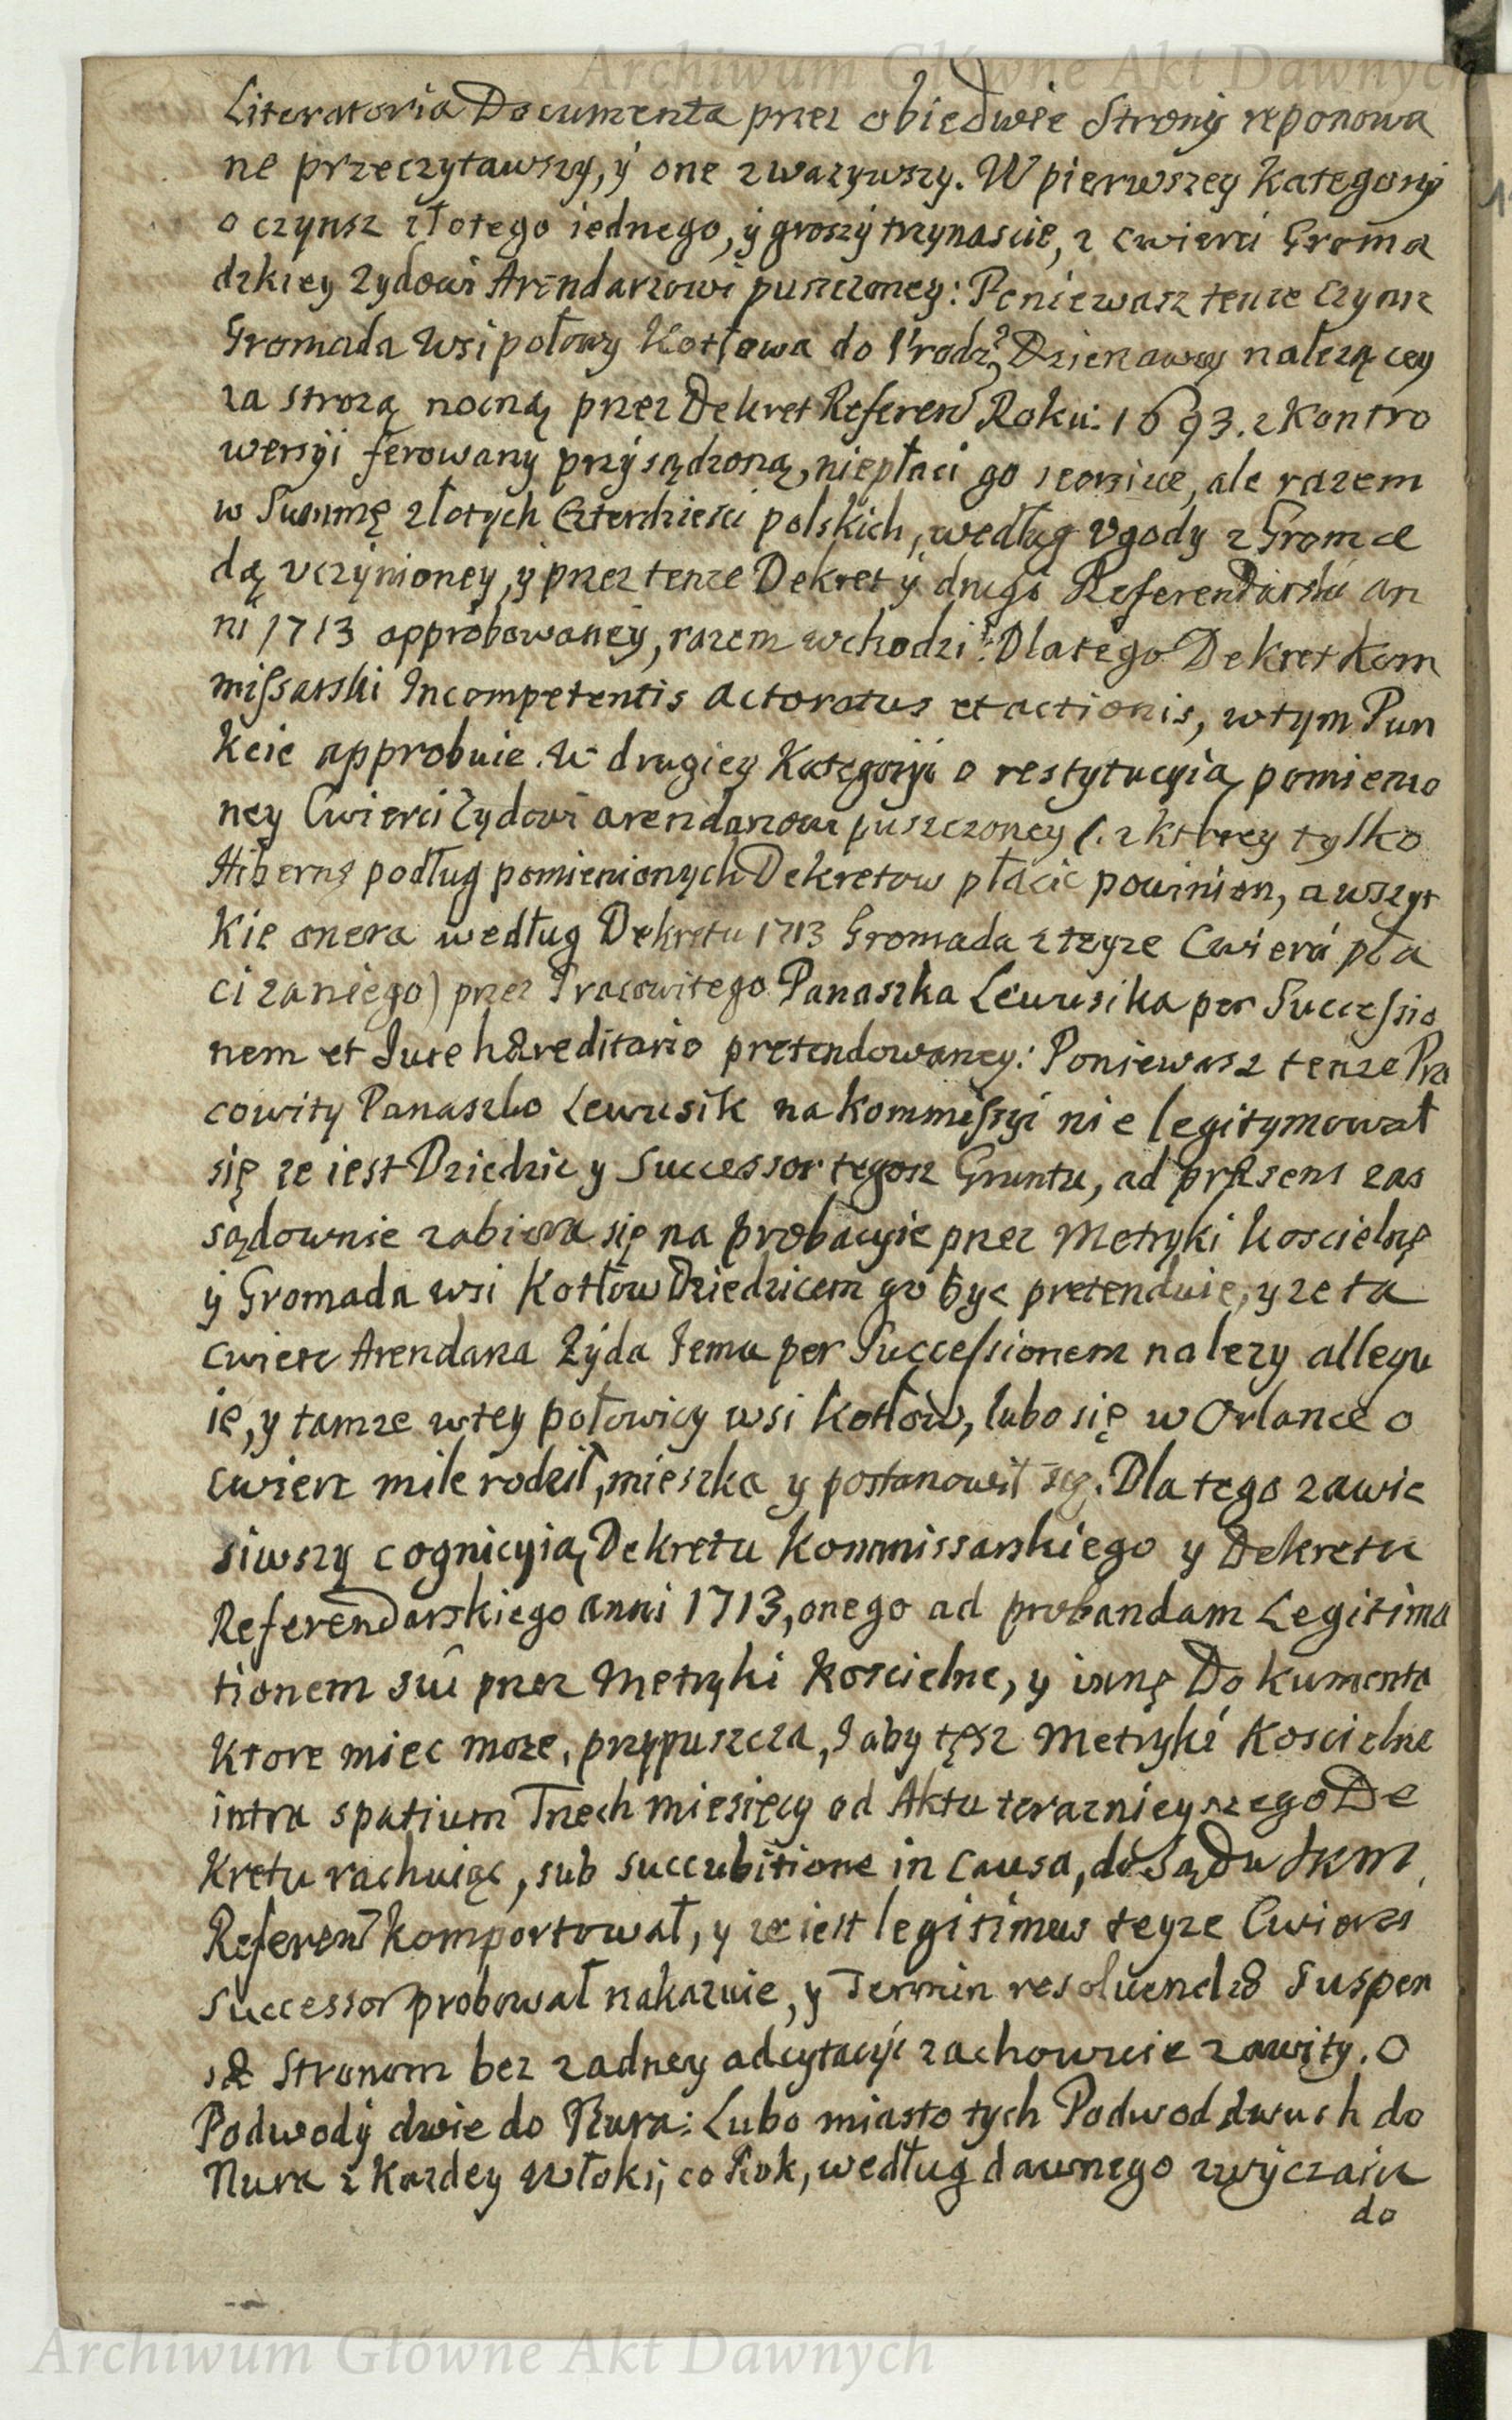 Archiwum Główne Akt Dawnych
Literatoria Documenta przez obiedwie Strony reponowa
ne przeczytawszy, y one zwazywszy. W pierwszey Kategoryi
o czynsz złotego iednego, y groszy trzynascie, z cwierci Groma
dzkiey Zydowi Arendarzowi puszczoney: Poniewasz tenze Czynsz
Gromada wsi połowy Kotłowa do Dzierzawy nalezącey
za strozą nocną przez Dekret Referen Roku: 1693. z Kontro
wersyi ferowany przysądzoną, niepłaci go, ale razem
w Summę złotych Czterdziesci polskich, według Vgody z Groma
dą vczynioney, y przez tenze Dekret y drugi Referendarski an
ni 1713 approbowaney, razem wchodzi: Dlatego Dekret Kom
missarski Incompetentis actoratus et actionis, w tym Pun
kcie approbuie. W drugiey Kategoryi o restytucyią pomienio
ney Cwierci Zydowi arendarzowi puszczoney (: z ktorey tylko
Hibernę podług pomienionych Dekretow płacic powinien, a wszyt
kie onera według Dekretu 1713 Gromada z teyze Cwierci pła
ci zaniego) przez Pracowitego Panaszka Lewusika per Successio
nem et Iure hæreditario pretendowaney: Poniewasz tenze Pra
cowity Panaszko Lewusik na Kommissyi nie legitymował
się ze iest Dziedzic y Successor tegosz Gruntu, ad præsens zas
sądownie zabiera się na probacyie przez Metryki koscielnę
y Gromada wsi Kotłow Dziedzicem go byc pretenduie, y ze ta
cwierc Arendarza Zyda Iemu per Successionem nalezy allegu
ie, y tamze w tey połowicy wsi Kotłow, lubo się w Orlance o
cwierc mile rodził, mieszka y postanowił się. Dla tego zawie
siwszy cognicyią Dekretu Kommissarskiego y Dekretu
Referendarskiego anni 1713, onego ad probandam Legitima
tionem suã przez Metryki Koscielne, y innę Dokumenta
ktore miec moze, przypuszcza, I aby tęsz Metryki Koscielne
intra spatium Trzech miesięcy od Aktu teraznieyszego De
kretu rachuiąc, sub succubitione in causa, do Sądu
Referen komportował, y ze iest legitimus teyze Cwierci
Successor probował nakazuie, y Termin resoluendæ Suspen
sæ Stronom bez zadney adcytacyi zachowuie zawity. O
Podwody dwie do Nura: Lubo miasto tych Podwod dwuch do
Nura z Kazdey włoki, co Rok, według dawnego zwyczaiu
do
Archiwum Główne Akt Dawnych